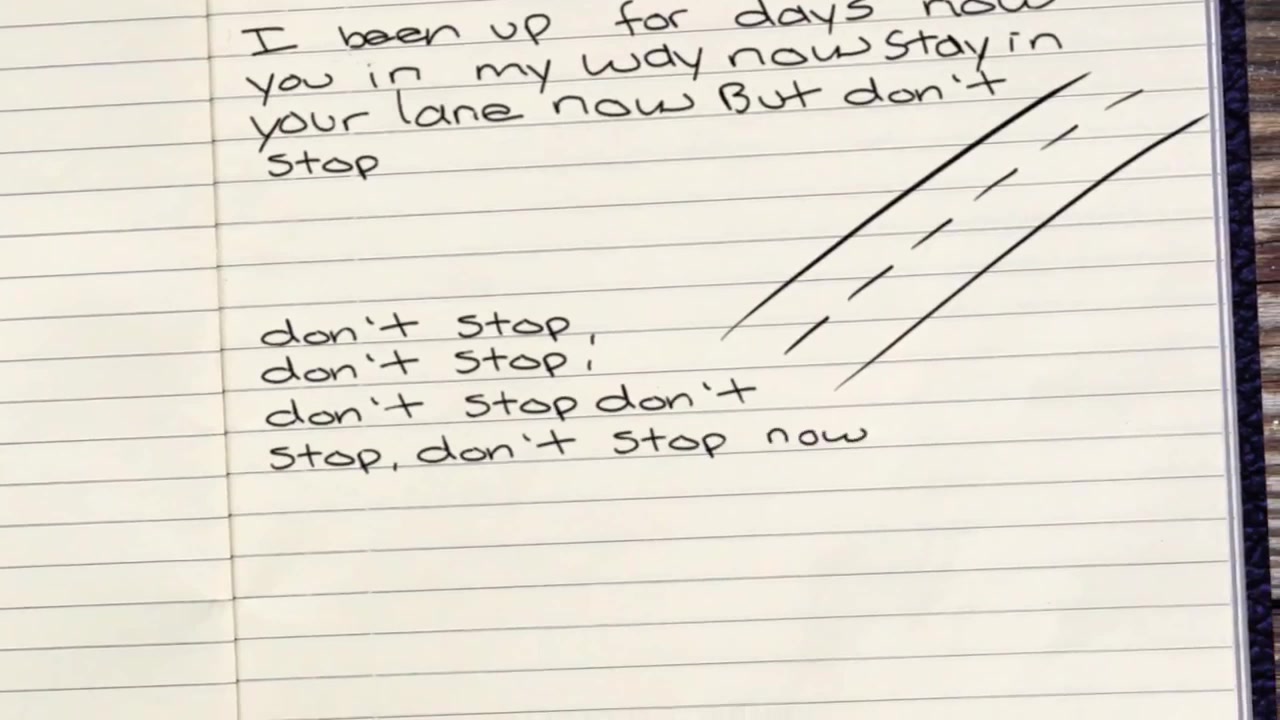 I been up for days now
you in my way now stay in
your lane now But don't
stop
don't stop,
don't stop,
don't stop don't
stop, don't stop now